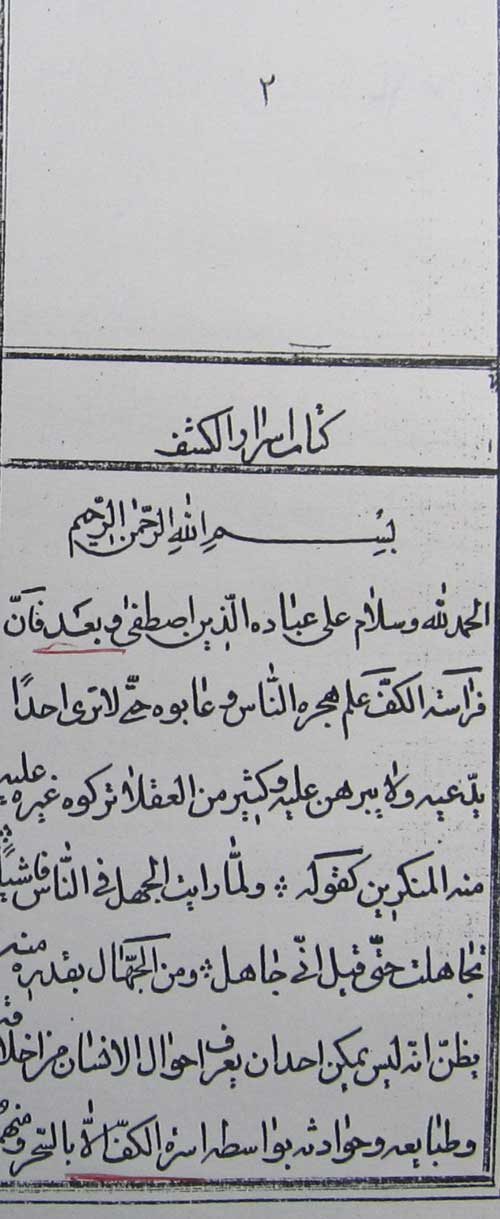 ٢
كتاب اسرار الكشف
بسم الله الرحمن الرحيم
الحمد لله وسلام على عباده الذين اصطفى وبعد فانّ
فراسة الكفّ علم هجره الناس وعابوه حتى لا ترى احدًا
يدعيه ولا يبرهن عليه وكثير من العقلاء تركوه غيرة عليه
منه المنكرين كقوله ؞ ولمّا رايت الجهل في النّاس فاشيًا
تجاهلت حتّى قيل انّي جاهل ؞ ومن الجهّال بقدره منه
يظنّ انه ليس يمكن احد ان يعرف احوال الانسان من اخلاقه
وطبايعه وحوادثه بواسطه اسرة الكفّ الّا بالسّحر ومنهم